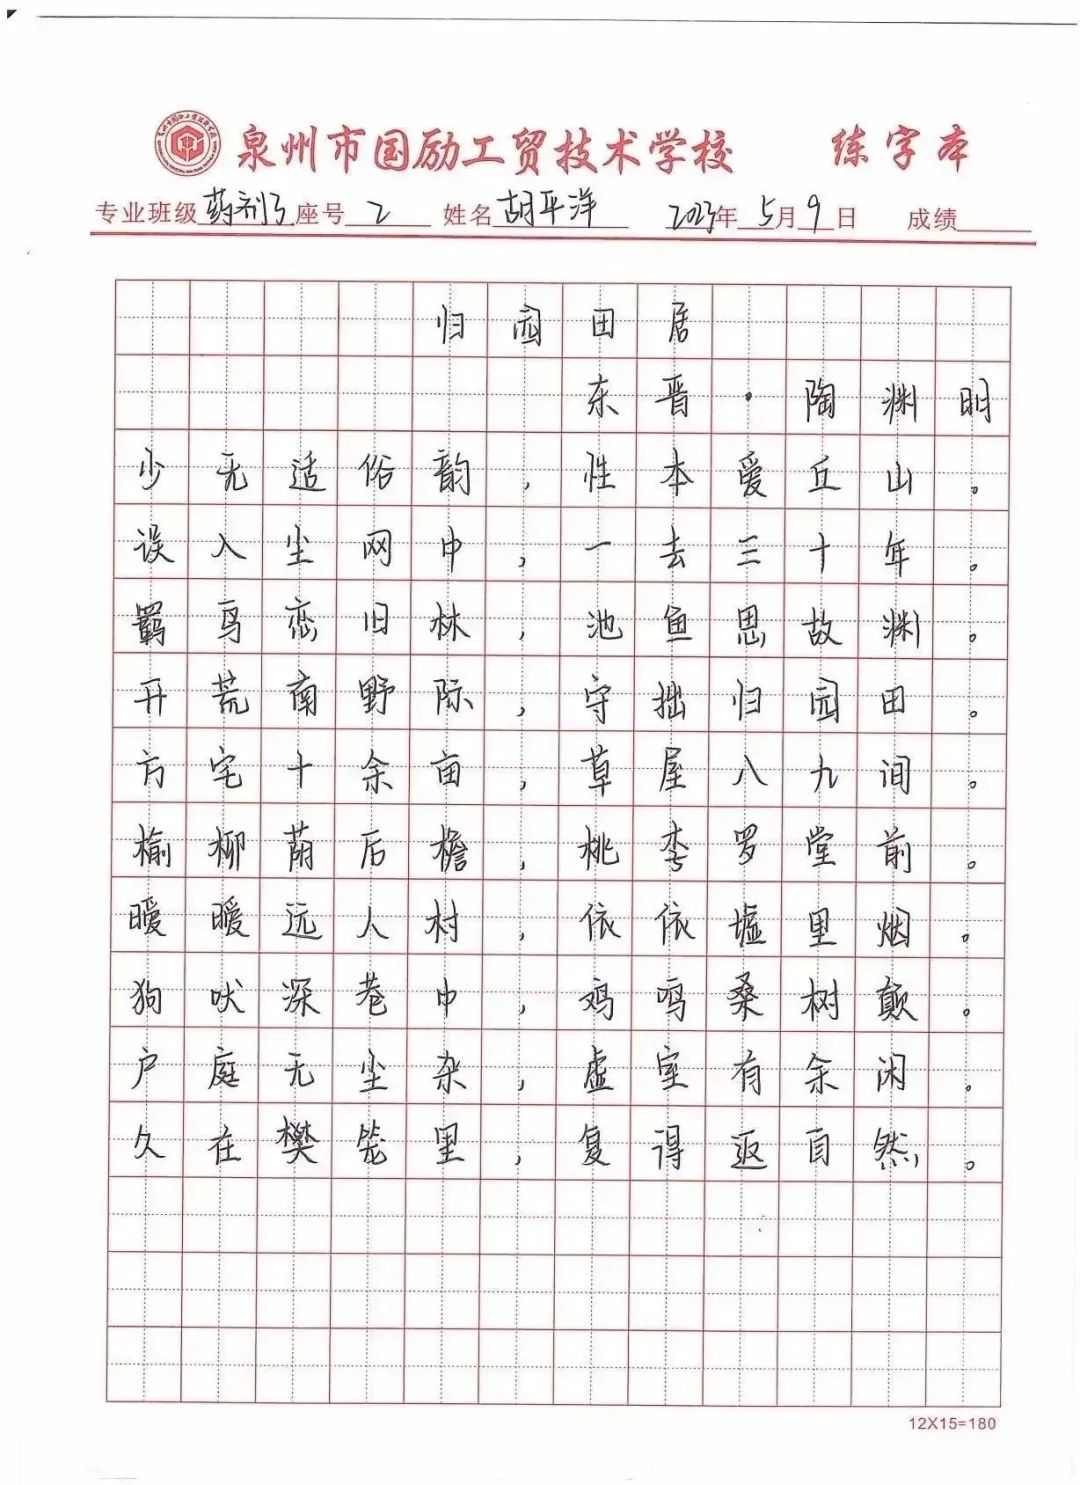 泉州市国励工贸技术学校 练字本
专业班级 药剂3 座号 2 姓名 胡平洋 2023年 5月 9日 成绩
归园田居
东晋·陶渊明
少无适俗韵,性本爱丘山。
误入尘网中,一去三十年。
羁鸟恋旧林,池鱼思故渊。
开荒南野际,守拙归园田。
方宅十余亩,草屋八九间。
榆柳荫后檐,桃李罗堂前。
暧暧远人村,依依墟里烟。
狗吠深巷中,鸡鸣桑树颠。
户庭无尘杂,虚室有余闲。
久在樊笼里,复得返自然。
12X15=180